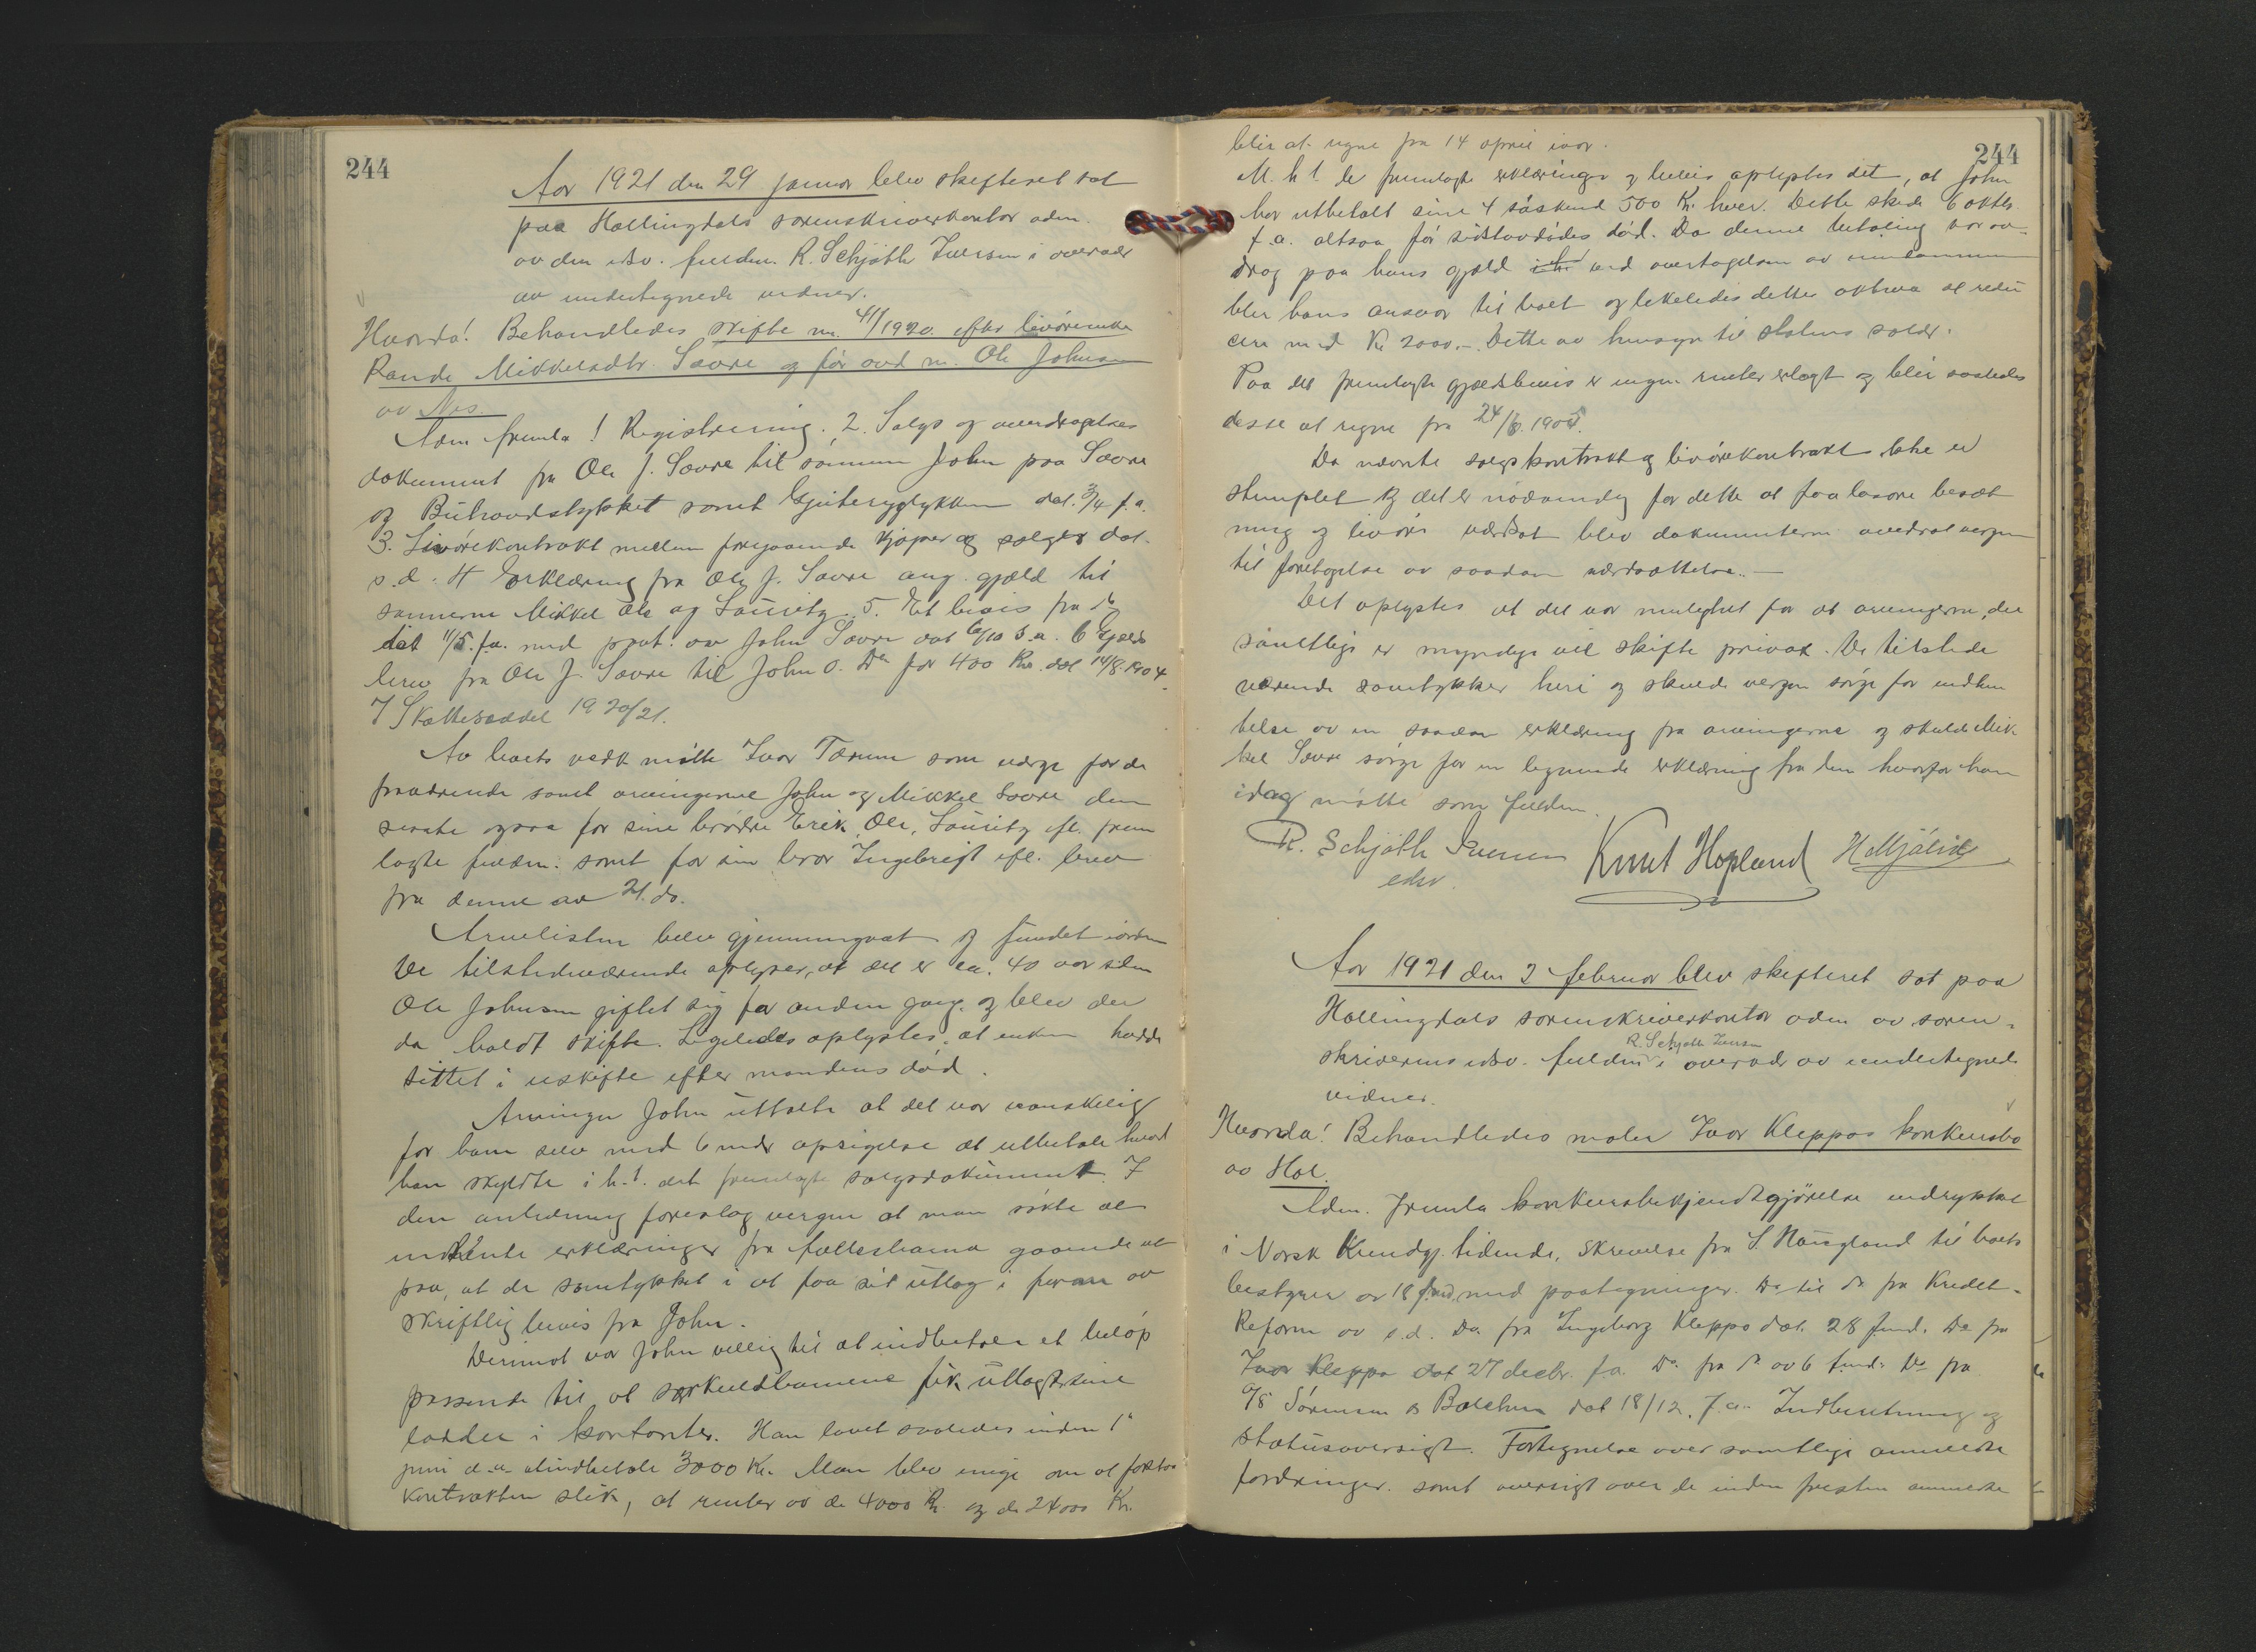 244
Aar 1921 den 29 januar blev skifteret sat
paa Hallingdals sorenskriverkontor adm.
av den edsv. fuldm. R. Schjøth Iversen i overvær
av undertegnede vidner.
Hvorda! Behandledes skifte nr. 41/1920 efter livørenke
Rande Mikkelsdtr. Sævre og før avd m. Ole Johnsen
av Nes
Adm fremla 1 Registrering. 2. Salgs og overdragelses
dokument fra Ole J. Sævre til sønnen John paa Sævre
og Buhovdstykket samt dat. 3/4 f.a.
3. Livørekontrakt mellem foregaaende kjøper og selger dat.
s.d. 4 Erklæring fra Ole J. Sævre ang. gjæld til
sønnerne Mikkel Ole og Lauritz. 5. Et bevis fra do
dat 11/5 f.a. med paat. av John Sævre dat 6/10 s.a. 6 Gjælds
brev fra Ole J. Sævre til John O. Do for 400 Kr. dat 14/8 1904.
7 Skatteseddel 1920/21.
Av boets vedk møtte Ivar Tærum som verge for de
fraværende samt arvingerne John og Mikkel Sævre den
sidste ogsaa for sine brødre Erik, Ole, Lauritz efl. frem
lagte fuldm. samt for sin bror Ingebrigt efl. brev
fra denne av 21. ds.
Arvelisten blev gjennemgaat og fundet iorden
De tilstedeværende oplyser, at det er ca. 40 aar siden
Ole Johnsen giftet sig for anden gang og blev der
da holdt skifte. Ligeledes oplystes, at enken hadde
sittet i uskifte efter mandens død.
Arvingen John uttalte at det var vanskelig
for ham selv med 6 mdr opsigelse at utbetale hvad
han skyldte i h.t. det fremlagte salgsdokument. I
den anledning foreslog vergen at man søkte at
indhente erklæringer fra fællesbarna gaaende ut
paa, at de samtykket i at faa sit utlæg i form av
skriftlig bevis fra John.
Derimot var John villig til at indbetale et beløp
passende til at særkuldbarnene fik utlagt sine
lodder i kontanter. Han lovet saaledes inden 1ste
juni d.a. at indbetale 3000 Kr. Man blev enige om at forstaa
kontrakten slik, at renter av de 4000 Kr. og de 24000 Kr.
244
blir at regne fra 14 april iaar.
M. h t de fremlagte erklæringer og bevis oplystes det, at John
har utbetalt sine 4 søskend 500 Kr. hver. Dette skede 6 oktbr.
f.a. altsaa før sidstavdødes død. Da denne betaling var av-
drag paa hans gjæld ved overtagelsen av eiendommen
blir hans ansvar til boet og likeledes dettes aktiva at redu
cere med Kr 2000.-. Dette av hensyn til statens
Paa det fremlagte gjældsbevis er ingen renter erlagt og blir saaledes
disse at regne fra 24/8. 1905.
Da nævnte salgskontrakt og livørekontrakt ikke er
stemplet og det er nødvendig for dette at faa løsøre besæt
ning og livøre værdsat blev dokumenterne overdrat vergen
til foretagelse av saadan værdsættelse. —
Det oplystes at det var mulighet for at arvingerne, der
samtlige er myndige vil skifte privat. De tilstede
værende samtykker heri og skulde vergen sørge for indhen
telse av en saadan erklæring fra arvingerne og skulde Mik
kel Sævre sørge for en lignende erklæring fra dem hvorfor han
idag møtte som fuldm.
R. Schjøth Iversen Knut Hopland H. Mjølid
edsv.
Aar 1921 den 2 februar blev skifteret sat paa
Hallingdals sorenskriverkontor adm av soren-
skriverens edsv. fuldm R. Schjøth Iversen i overvær av undertegnede
vidner.
Hvorda! Behandledes maler Ivar Kleppos konkursbo
av Hol.
Adm. fremla konkursbekjendtgjørelse indrykket
i Norsk Kundgj. tidende, skrivelse fra S. Haugland til boets
bestyrer av 18 f. md med paategninger. Do til do fra Kredit-
Reform av s.d. Do fra Ingeborg Kleppo dat. 28 f.md. Do fra
Ivar Kleppo dat 27 decbr. f.a. Do fra do av 6 f.md. Do fra
A/S Sørensen & Balchen dat 18/12. f.a. Indberetning og
statusoversigt. Fortegnelse over samtlige anmeldte
fordringer samt oversigt over de inden fristen anmeldte